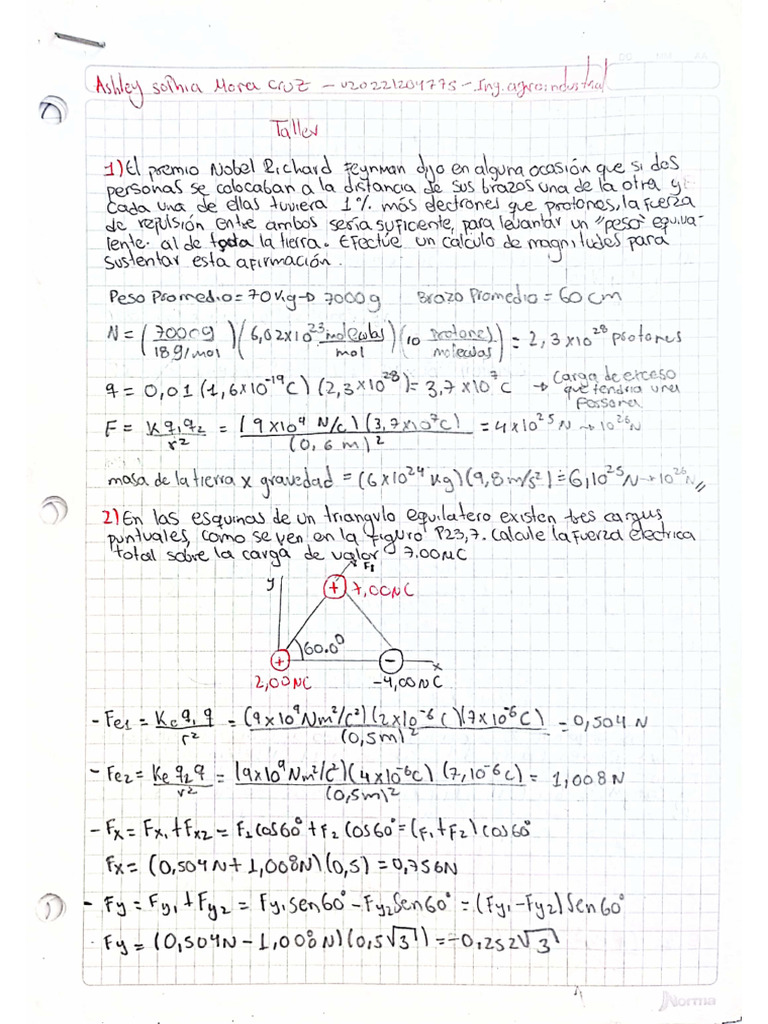 Ashley sophia Mora Cruz - u20221204775 - Ing. agroindustrial
Taller
1) El premio Nobel Richard Feynman dijo en alguna ocasión que si dos
personas se colocaban a la distancia de sus brazos una de la otra y
cada una de ellas tuviera 1% más electrones que protones, la fuerza
de repulsión entre ambos sería suficiente, para levantar un "peso" equiva-
lente al de toda la tierra. Efectúe un calculo de magnitudes para
sustentar esta afirmación.
Peso Promedio = 70 Kg → 7000 g Brazo Promedio = 60 cm
N = (7000 g / 18 g/mol) (6,02x10^23 moleculas / mol) (10 protones / moleculas) = 2,3x10^28 protones
q = 0,01 (1,6x10^-19 C) (2,3x10^28) = 3,7x10^7 C → Carga de exceso
que tendria una
Persona
F = K q1 q2 / r^2 = (9x10^9 N/c) (3,7x10^7 C) / (0,6 m)^2 = 4x10^25 N → 10^26 N
masa de la tierra x gravedad = (6x10^24 Kg) (9,8 m/s^2) = 6,10^25 N → 10^26 N //
2) En las esquinas de un triangulo equilatero existen tres cargas
puntuales, como se ven en la figura P23,7. Calcule la fuerza electrica
total sobre la carga de valor 7.00 MC
F1
y
+ 7,00 NC
60.0°
+ - x
2,00 NC -4,00 NC
- Fe1 = Ke q1 q / r^2 = (9x10^9 Nm^2/C^2) (2x10^-6 C) (7x10^-6 C) / (0,5m)^2 = 0,504 N
- Fe2 = Ke q2 q / r^2 = (9x10^9 Nm^2/C^2) (4x10^-6 C) (7,10^-6 C) / (0,5m)^2 = 1,008 N
- Fx = Fx1 + Fx2 = F1 cos60° + F2 Cos60° = (F1 + F2) cos60°
Fx = (0,504N + 1,008N) (0,5) = 0,756N
- Fy = Fy1 + Fy2 = Fy1 sen60° - Fy2 Sen60° = (Fy1 - Fy2) Sen60°
Fy = (0,504N - 1,008N) (0,5√3) = -0,252√3
Norma